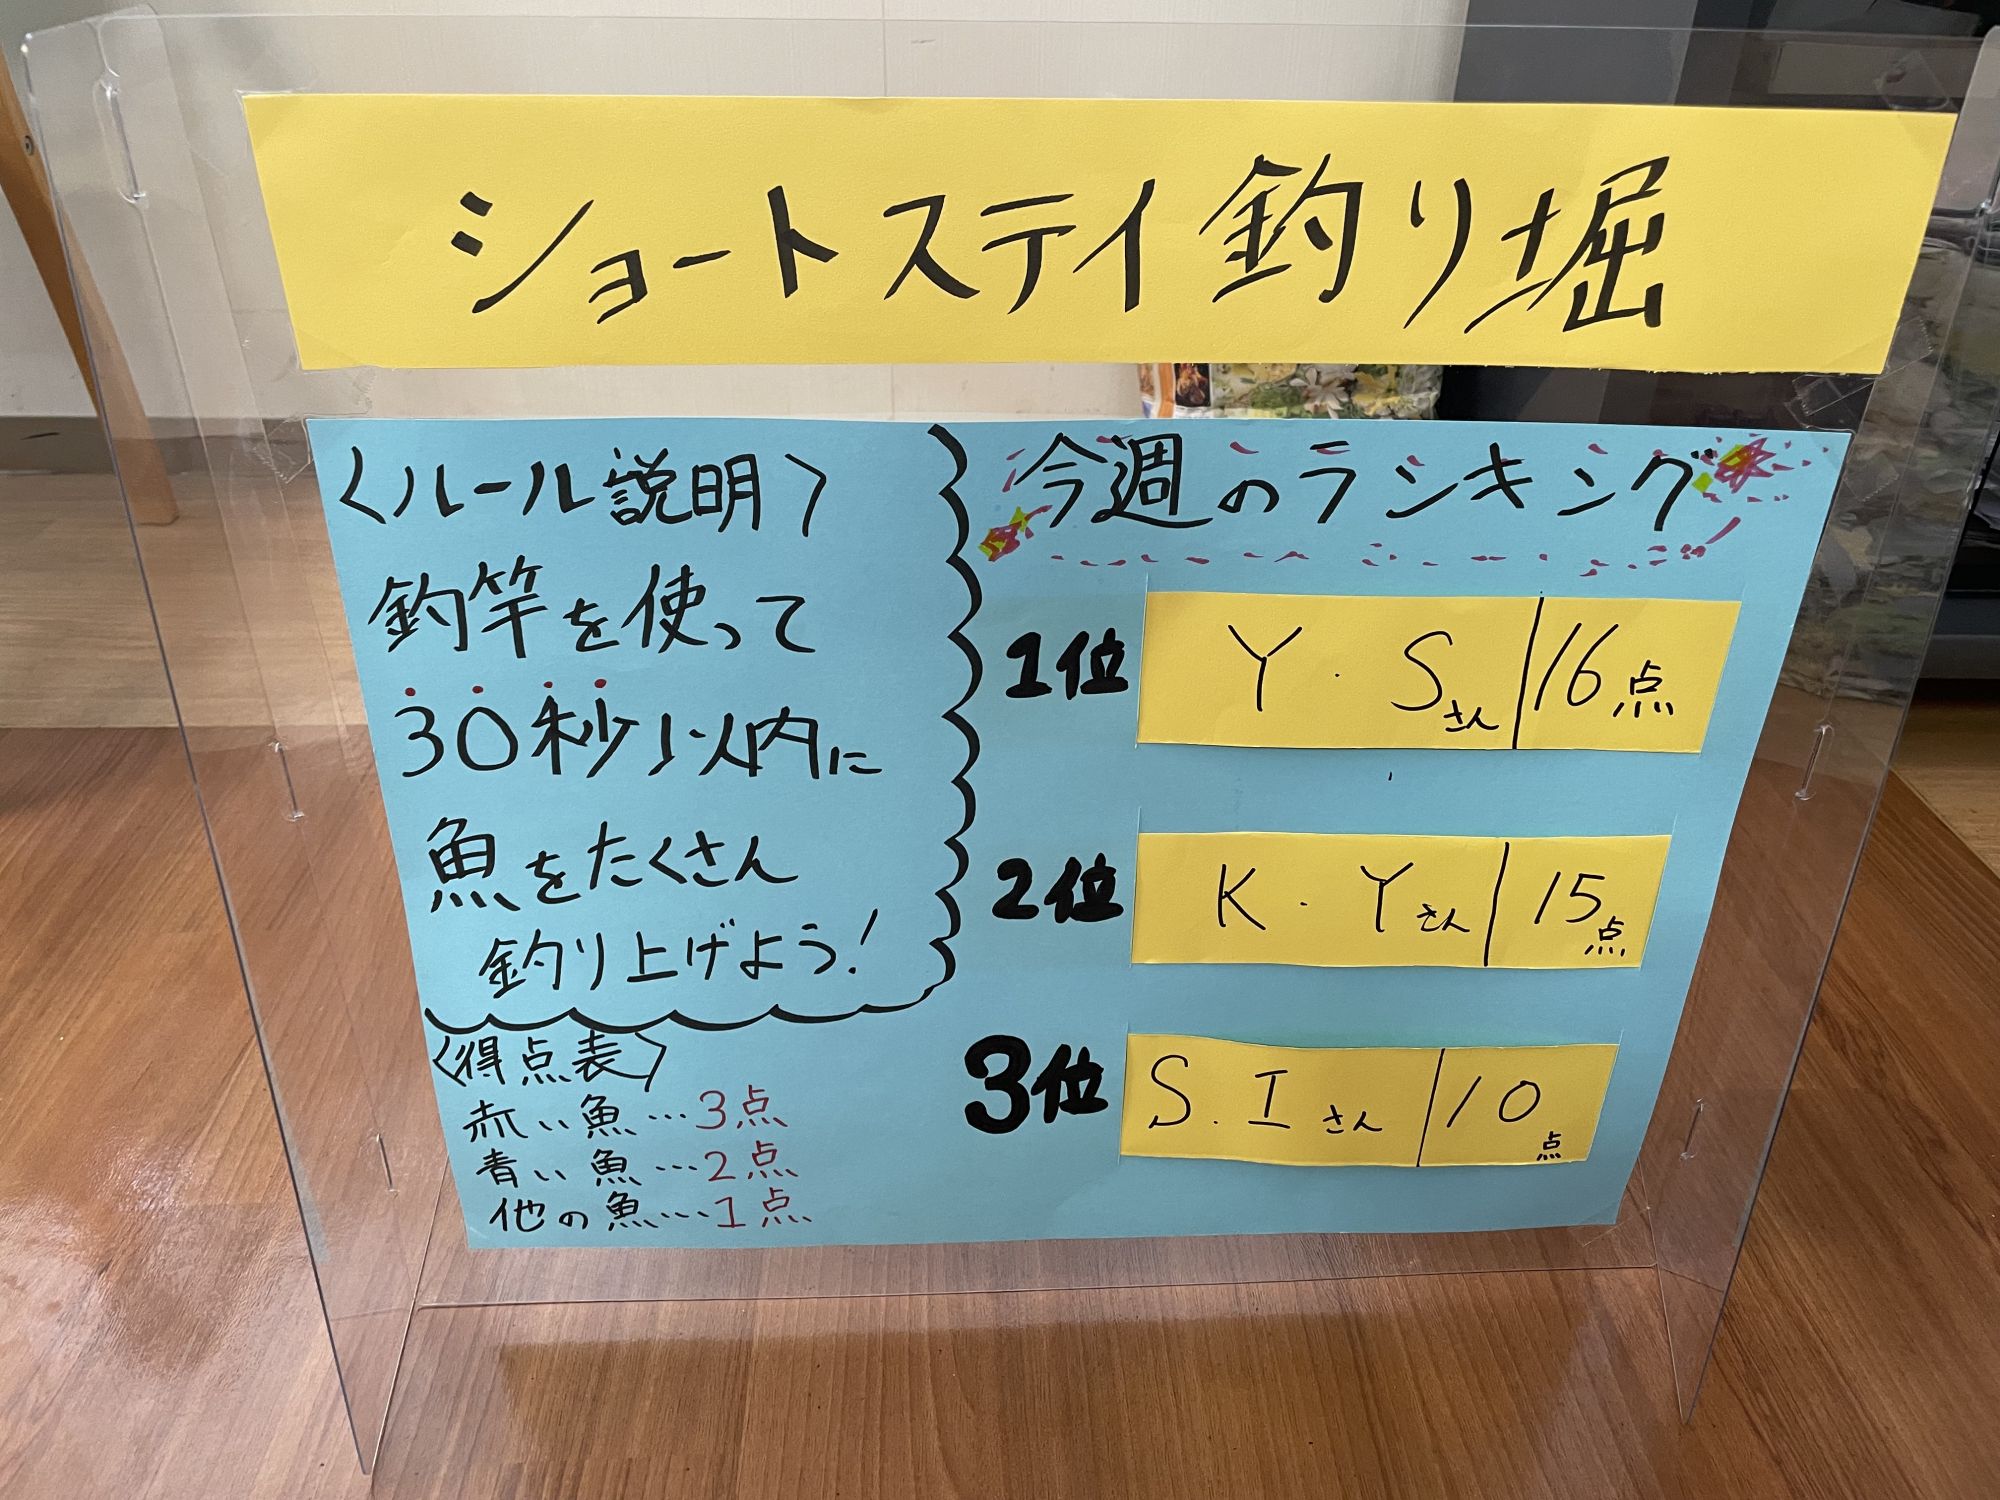 ショートステイ釣り堀
〈ルール説明〉
釣竿を使って
30秒以内に
魚をたくさん
釣り上げよう!
〈得点表〉
赤い魚…3点
青い魚…2点
他の魚…1点
今週のランキング
1位 Y・Sさん 16点
2位 K・Yさん 15点
3位 S.Iさん 10点